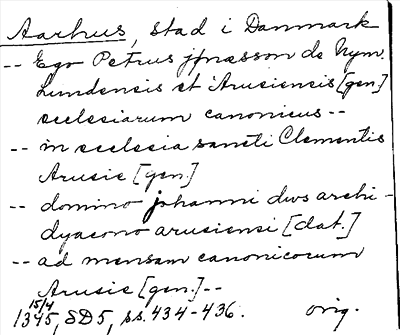 Aarhus, stad i Danmark
-- Ego Petrus jfnæsson de Nym.
Lundensis et Arusiensis [gen]
ecclesiarum canonicus --
-- in ecclesia sancti Clementis
Arusie [gen.]
-- domino johanni dws archi-
dyacono arusiensi [dat.]
-- ad mensam canonicorum
Arusie [gen.] --
15/4
1345, SD5, ss. 434-436. orig.